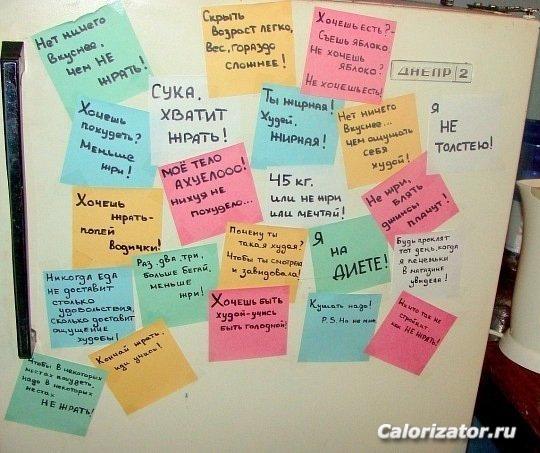 Нет ничего
вкуснее,
чем НЕ
ЖРАТЬ!
Скрыть
возраст легко,
вес, гораздо
сложнее!
Хочешь есть?-
Съешь яблоко
Не хочешь
яблоко?
Не хочешь есть!
ДНЕПР 2
Хочешь
похудеть?
Меньше
жри!
СУКА,
ХВАТИТ
ЖРАТЬ!
Ты жирная!
Худей,
ЖИРНАЯ!
Нет ничего
вкуснее...
чем ощущать
себя
худой!
Я
НЕ
ТОЛСТЕЮ!
МОЁ ТЕЛО
АХУЕЛООО!
нихуя не
похудело...
45 кг.
или не жри
или мечтай!
Не жри,
блять
джинсы
плачут!
Хочешь
жрать-
попей
водички!
Раз, два, три,
больше бегай,
меньше
жри!
Почему ты
такая худая?
Чтобы ты смотрела
и завидовала!
Я
НА
ДИЕТЕ!
Будь проклят
тот день, когда
я печеньки
в магазине
увидела!
Никогда еда
не доставит
столько
удовольствия,
сколько доставит
ощущение
худобы!
Хочешь быть
худой-учись
быть голодной!
Кушать надо!
P.S. Но не мне.
Ничто так не
стройнит,
как НЕ ЖРАТЬ!
Чтобы в некоторых
местах похудеть,
надо в некоторых
местах
НЕ ЖРАТЬ!
Кончай жрать,
иди учись!
Calorizator.ru